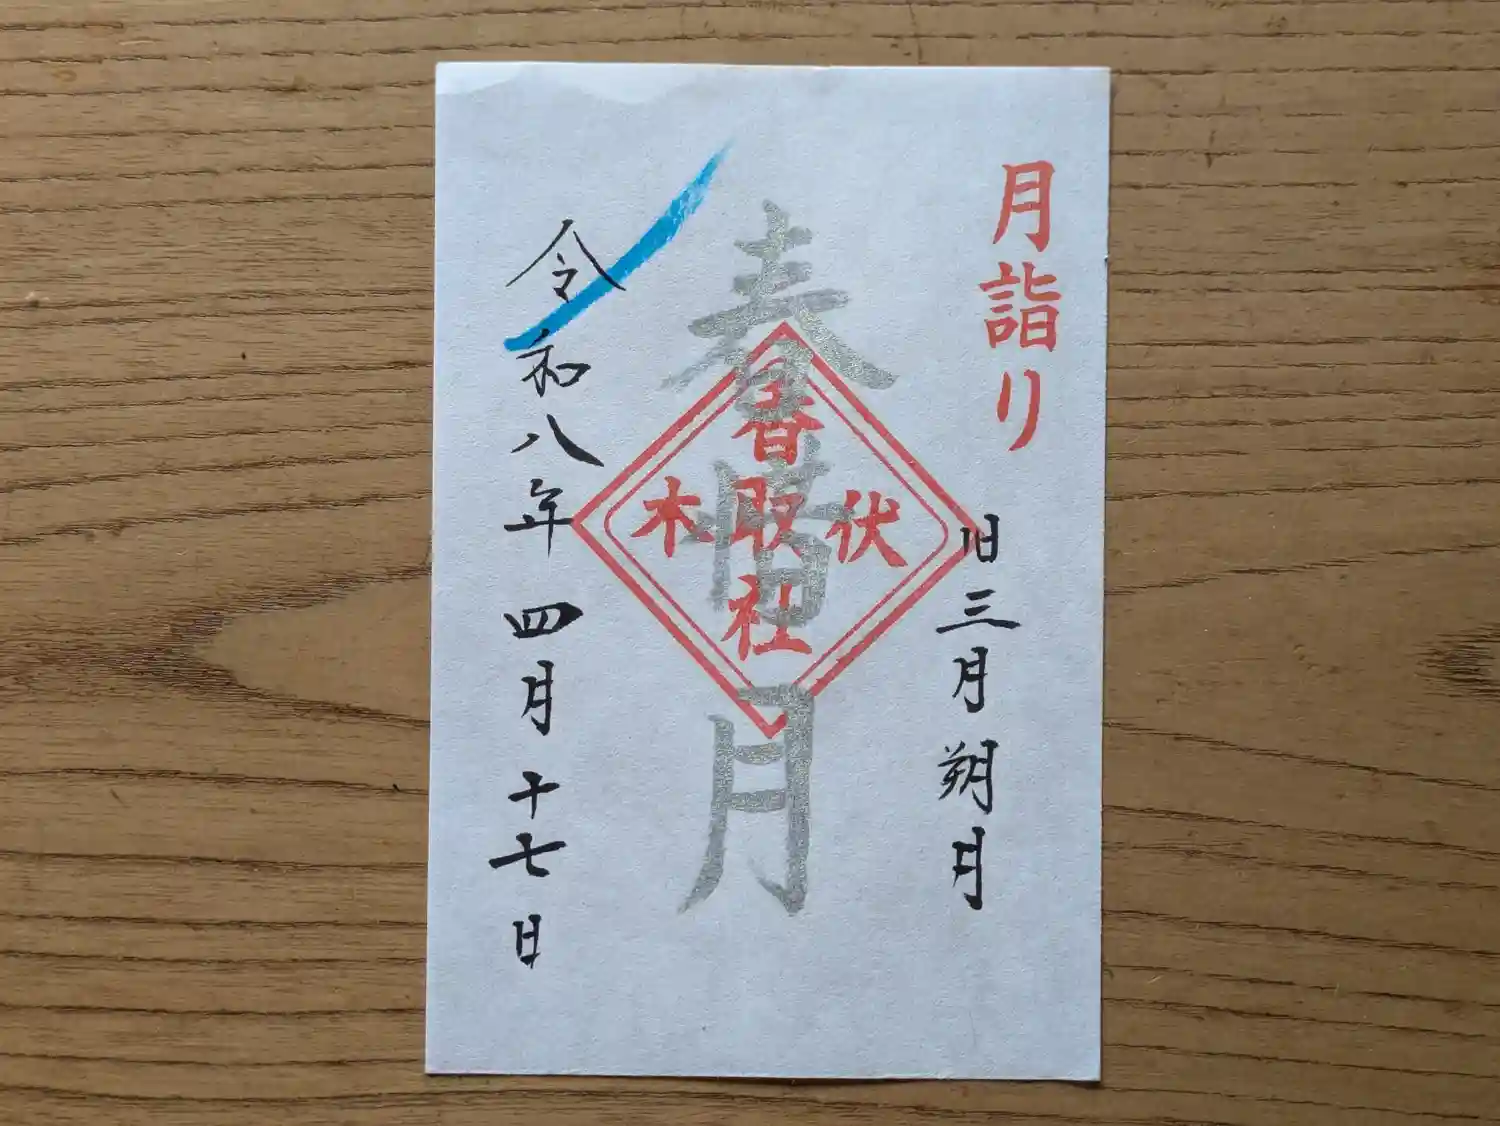 月詣り
旧三月朔日
春惜月
伏木
香取社
令和八年四月十七日